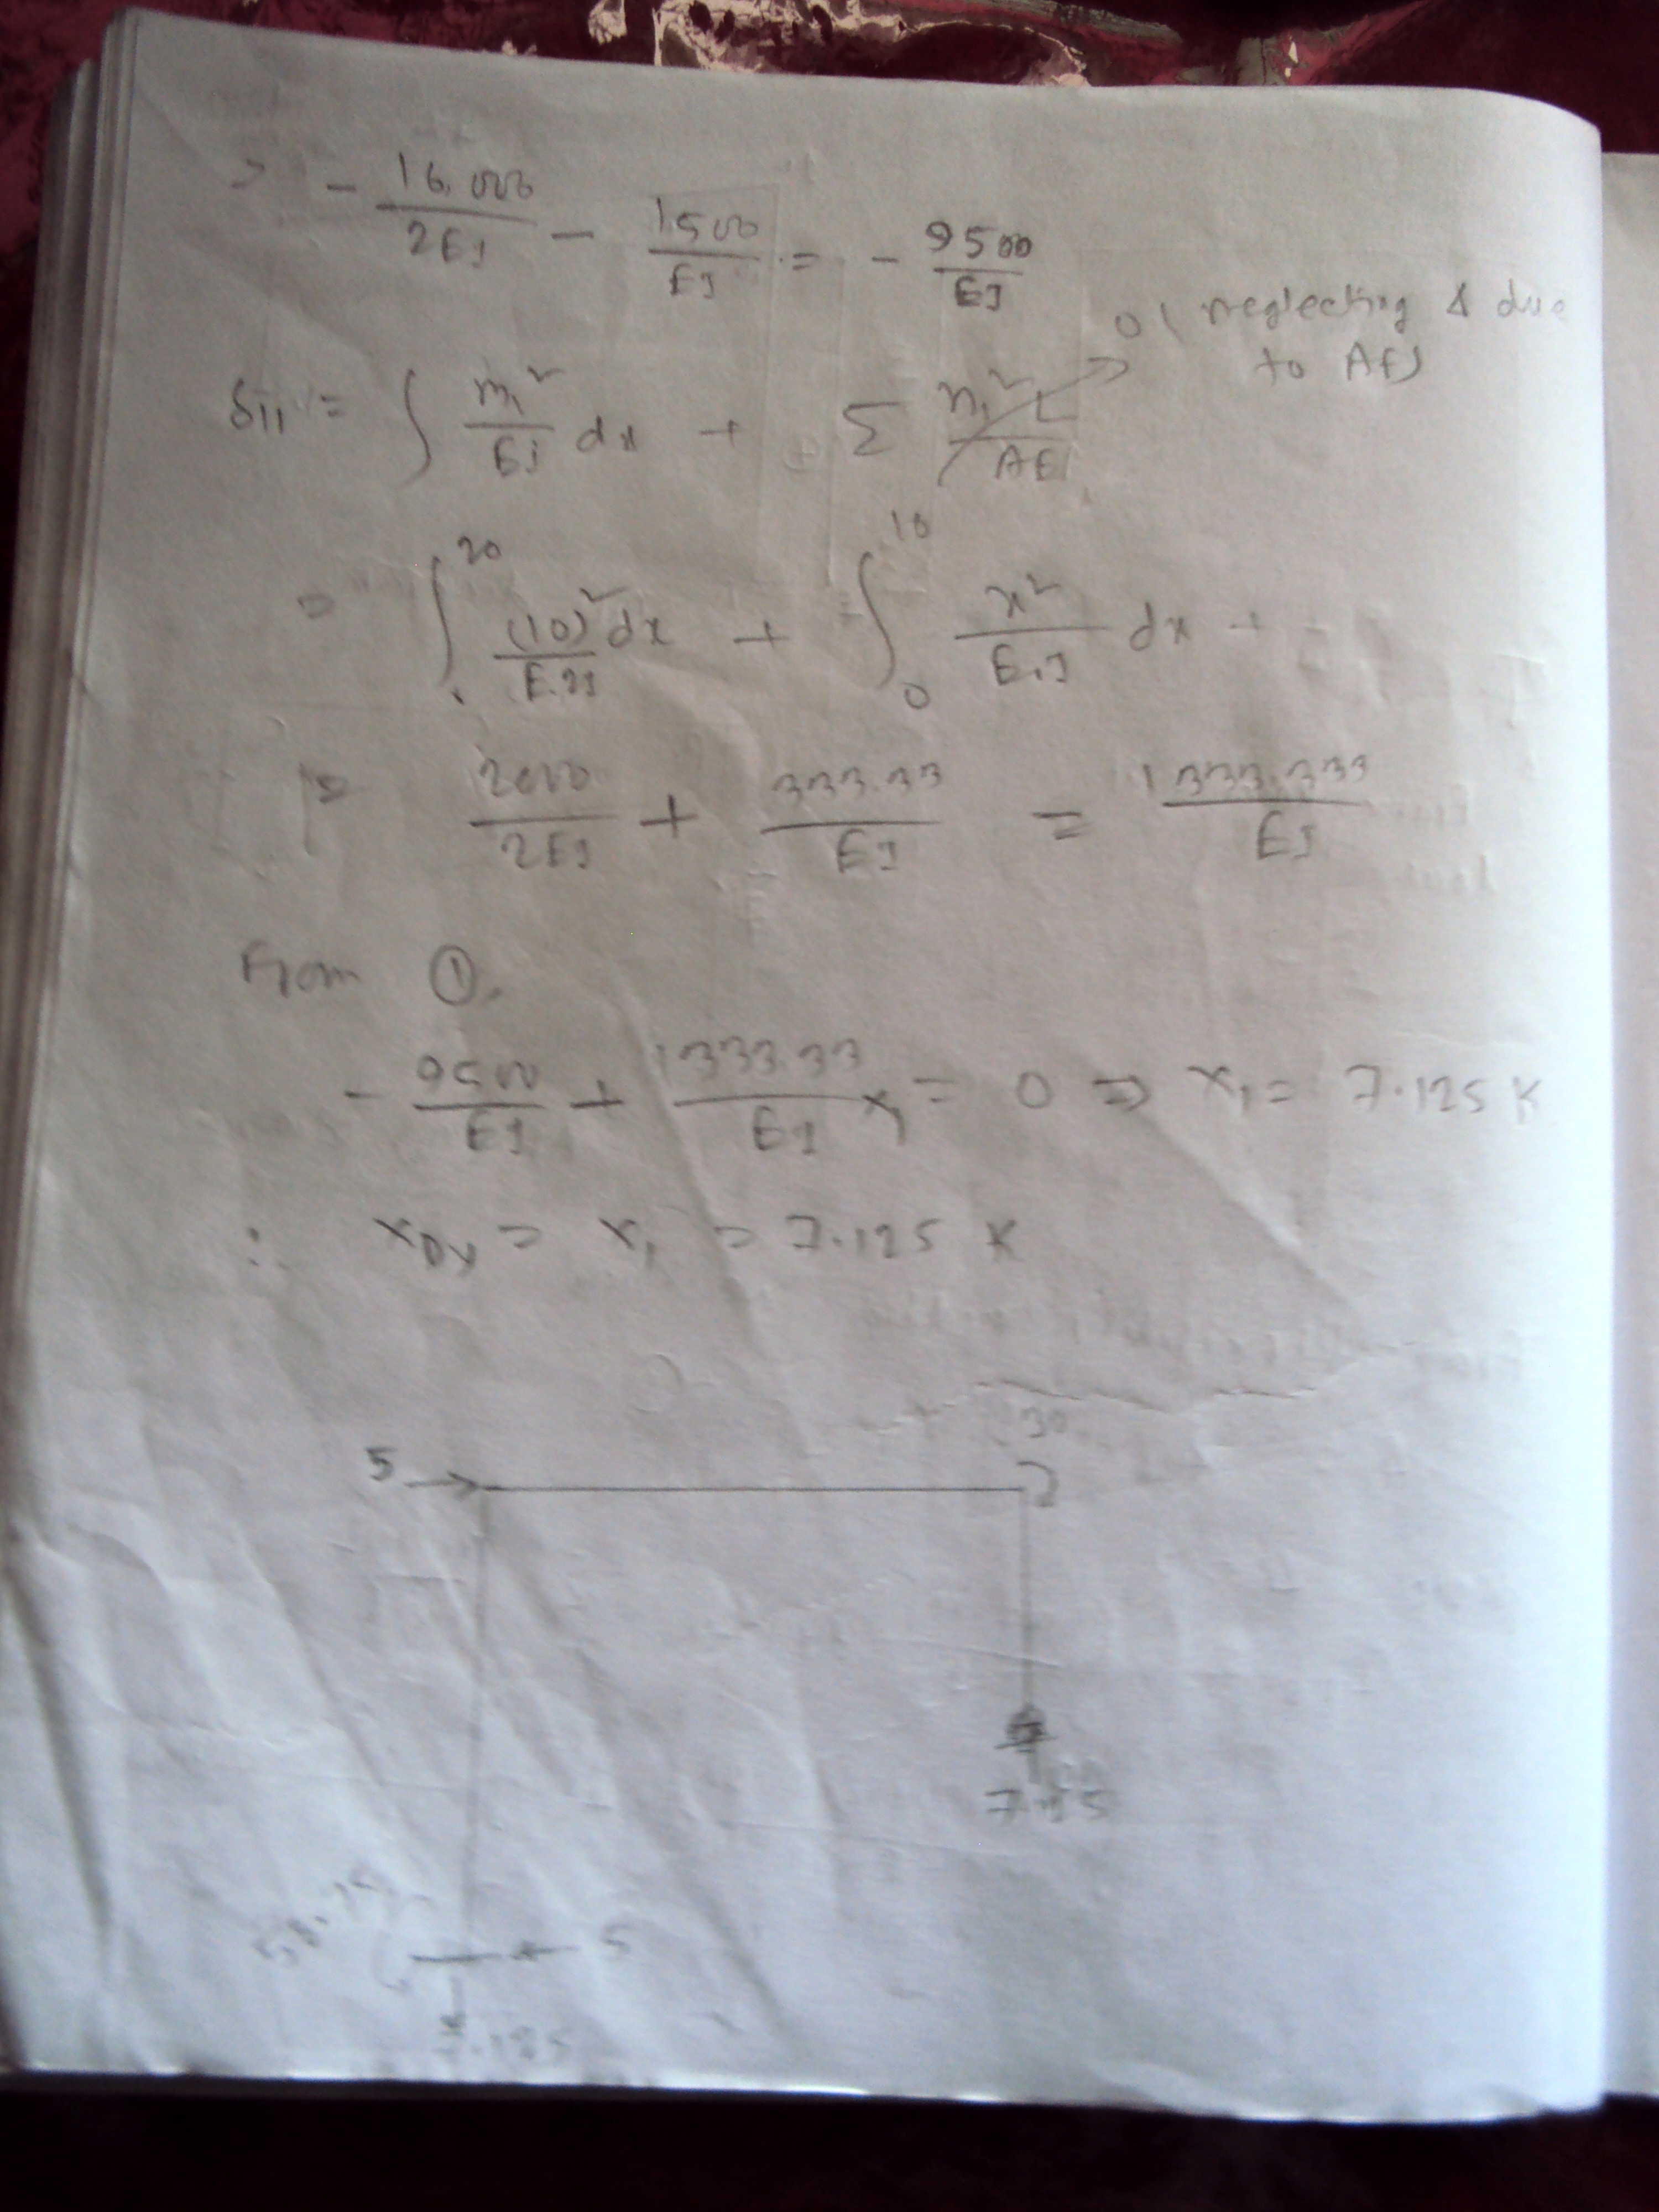 ⇒ - 16,000/2EI - 1500/EI = - 9500/EI
0 ( neglecting Δ due to AF)
δ11 = ∫ m₁²/EI dx + Σ n₁²L/AE
= ∫ 20 (10)² dx/E.2I + ∫ 0 10 x²/E.I dx +
= 2000/2EI + 333.33/EI = 1333.333/EI
From ①,
- 9500/EI + 1333.33/EI x₁ = 0 ⇒ x₁ = 7.125 K
∴ XDy = X₁ = 7.125 K
30
5 →
5
7.125